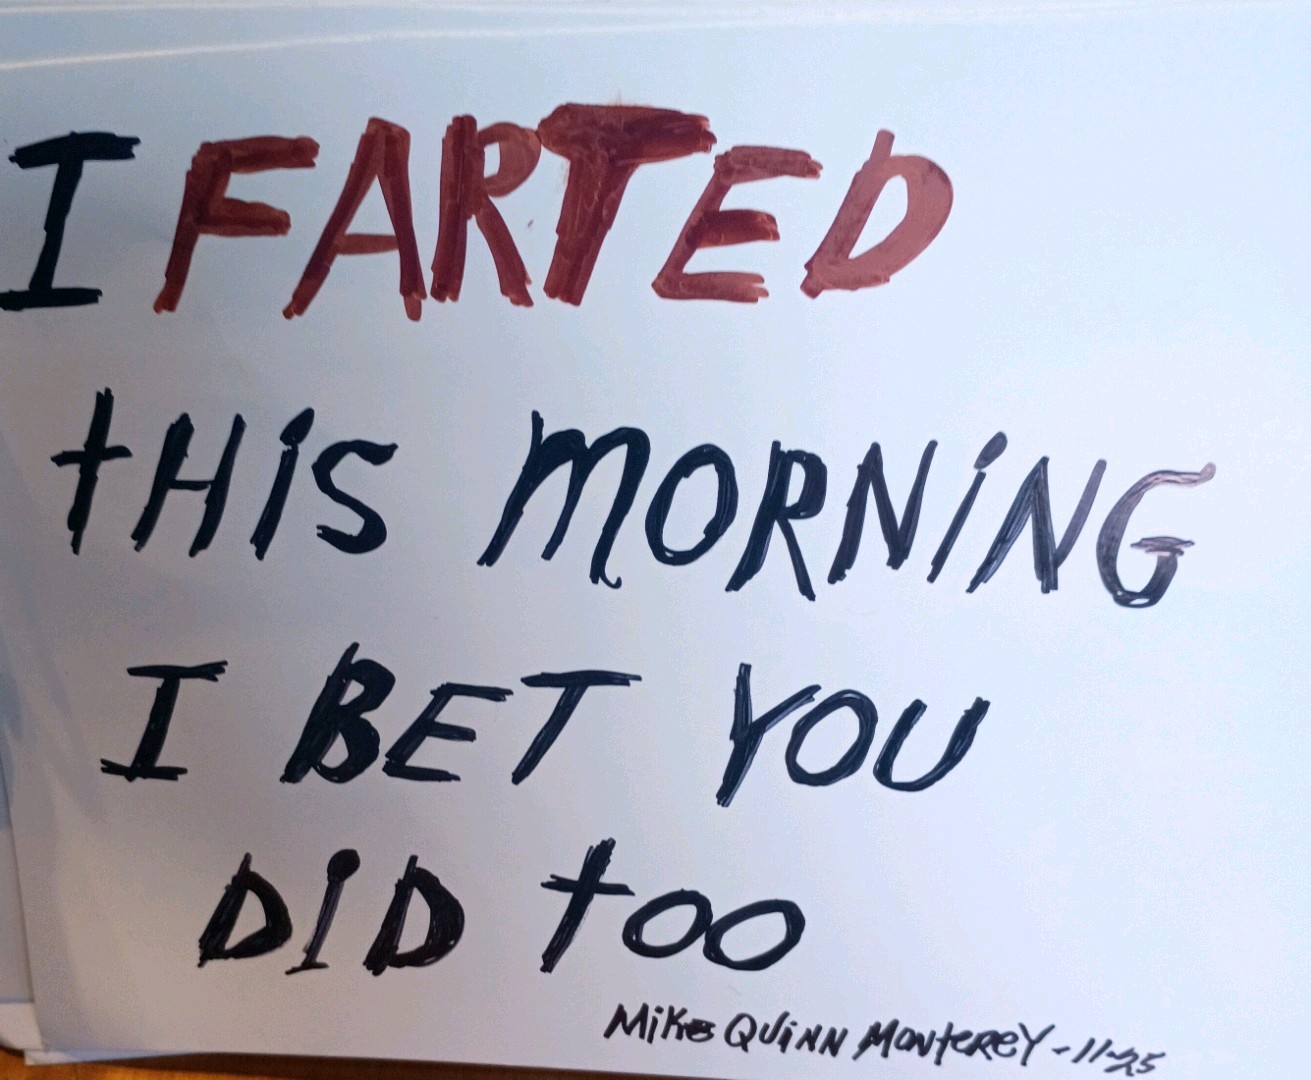 I FARTED
tHiS MORNiNG
I BET YOU
DiD tOO
MiKe QUiNN MONtEReY - 11-25